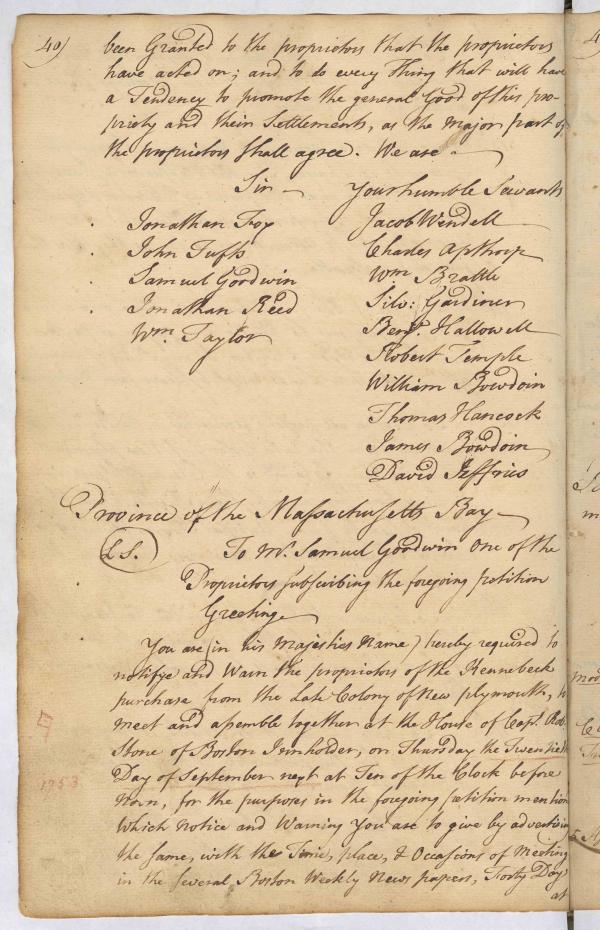 40)
been Granted to the proprietors that the proprietors
have acted on; and to do every Thing that will have
a Tendency to promote the general Good of this pro-
priety and their Settlements, as the Major part of
the proprietors shall agree. We are
Sir Your humble Servants
Jonathan Fox Jacob Wendell
John Tufts Charles Apthorp
Samuel Goodwin Wm Brattle
Jonathan Reed Silv: Gardiner
Wm. Taylor Benj. Hallowell
Robert Temple
William Bowdoin
Thomas Hancock
James Bowdoin
David Jeffries
Province of the Massachusetts Bay
L S. To Mr. Samuel Goodwin One of the
Proprietors subscribing the foregoing petition
Greeting
You are (in his Majesties Name) hereby required to
notifye and Warn the proprietors of the Kennebeck
purchase from the Late Colony of New plymouth, to
meet and assemble together at the House of Capt. Rob.
Stone of Boston Innholder, on Thursday the Twentieth
Day of September next at Ten of the Clock before
1753
Noon, for the purposes in the foregoing petition mention
Which Notice and Warning You are to give by advertising
the same, with the Time, place, & Occasions of Meeting
in the several Boston Weekly News papers, Forty Days
at